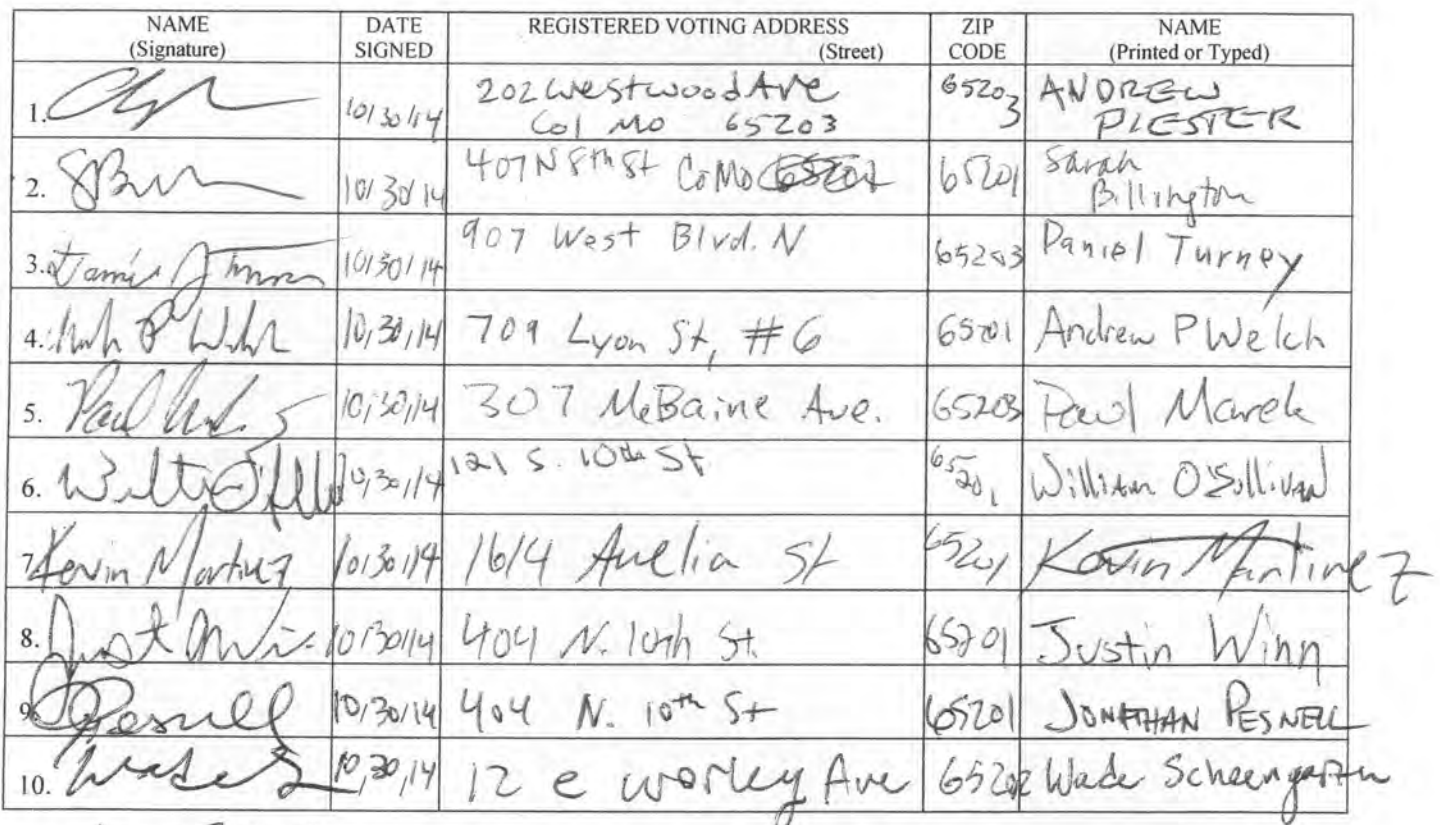 NAME (Signature) DATE SIGNED REGISTERED VOTING ADDRESS (Street) ZIP CODE NAME (Printed or Typed)
1. 10/30/14 202 Westwood Ave Col Mo 65203 65203 ANDREW PIESTER
2. 10/30/14 407 N 8th St CoMo 65201 Sarah Billington
3. 10/30/14 907 West Blvd. N 65203 Daniel Turney
4. 10/30/14 709 Lyon St, #6 65201 Andrew P Welch
5. Paul 10/30/14 307 McBaine Ave. 65203 Paul Marek
6. 10/30/14 121 S. 10th St. 65201 William O'Sullivan
7. Kevin Martinez 10/30/14 1614 Amelia St 65201 Kevin Martinez
8. 10/30/14 404 N. 10th St. 65201 Justin Winn
9. Pesnell 10/30/14 404 N. 10th St 65201 JONATHAN PESNELL
10. 10/30/14 12 e worley Ave 65202 Wade Scheengarten